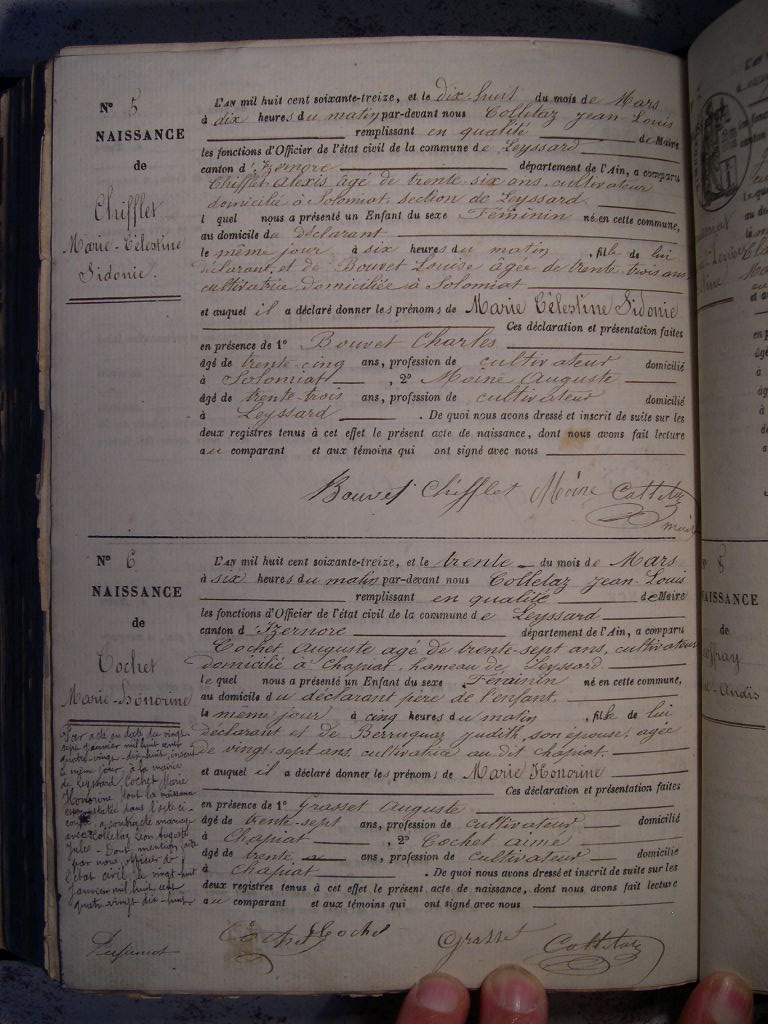 N° 5
NAISSANCE
de
Chifflet
Marie-Célestine
Sidonie.
L'AN mil huit cent soixante-treize, et le dix-huit du mois de Mars
à dix heures du matin par-devant nous Colletaz Jean-Louis
remplissant en qualité de Maire
les fonctions d'Officier de l'état civil de la commune de Leyssard
canton d'Izernore département de l'Ain, a comparu
Chifflet Alexis âgé de trente-six ans, cultivateur
domicilié à Solomiat, section de Leyssard.
lequel nous a présenté un Enfant du sexe Féminin né en cette commune,
au domicile du déclarant
le même jour à six heures du matin, fille de lui
déclarant, et de Bouvet Louise âgée de trente-trois ans
cultivatrice, domiciliée à Solomiat
et auquel il a déclaré donner les prénoms de Marie Célestine Sidonie
Ces déclaration et présentation faites
en présence de 1° Bouvet Charles
âgé de trente-cinq ans, profession de cultivateur domicilié
à Solomiat, 2° Moine Auguste
âgé de trente-trois ans, profession de cultivateur domicilié
à Leyssard. De quoi nous avons dressé et inscrit de suite sur les
deux registres tenus à cet effet le présent acte de naissance, dont nous avons fait lecture
au comparant et aux témoins qui ont signé avec nous
Bouvet Chifflet Moine Colletaz
maire
N° 6
NAISSANCE
de
Cochet
Marie-Honorine
L'AN mil huit cent soixante-treize, et le trente du mois de Mars
à six heures du matin par-devant nous Colletaz Jean-Louis
remplissant en qualité de Maire
les fonctions d'Officier de l'état civil de la commune de Leyssard
canton d'Izernore département de l'Ain, a comparu
Cochet Auguste âgé de trente-sept ans, cultivateur
domicilié à Chapiat, hameau de Leyssard
lequel nous a présenté un Enfant du sexe Féminin né en cette commune,
au domicile du déclarant père de l'enfant.
le même jour à cinq heures du matin, fille de lui
déclarant et de Berruquaz Judith, son épouse, agée
de vingt-sept ans, cultivatrice au dit Chapiat.
et auquel il a déclaré donner les prénoms de Marie Honorine
Ces déclaration et présentation faites
en présence de 1° Grasset Auguste
âgé de trente-sept ans, profession de cultivateur domicilié
à Chapiat, 2° Cochet aimé
âgé de trente ans, profession de cultivateur domicilié
à Chapiat. De quoi nous avons dressé et inscrit de suite sur les
deux registres tenus à cet effet le présent acte de naissance, dont nous avons fait lecture
au comparant et aux témoins qui ont signé avec nous
Par acte en date du vingt-
sept janvier mil huit cent
quatre-vingt-dix-huit, inscrit
le même jour, à la mairie
de Leyssard, Cochet Marie
Honorine dont la naissance
est constatée dans l'acte ci-
contre, a contracté mariage
avec Colletaz Léon Auguste
Jules. Dont mention faite
par nous, officier de
l'état civil, le vingt-huit
Janvier mil huit cent
quatre-vingt dix-huit
Cochet Cochet Grasset Colletaz
N° 8
NAISSANCE
de